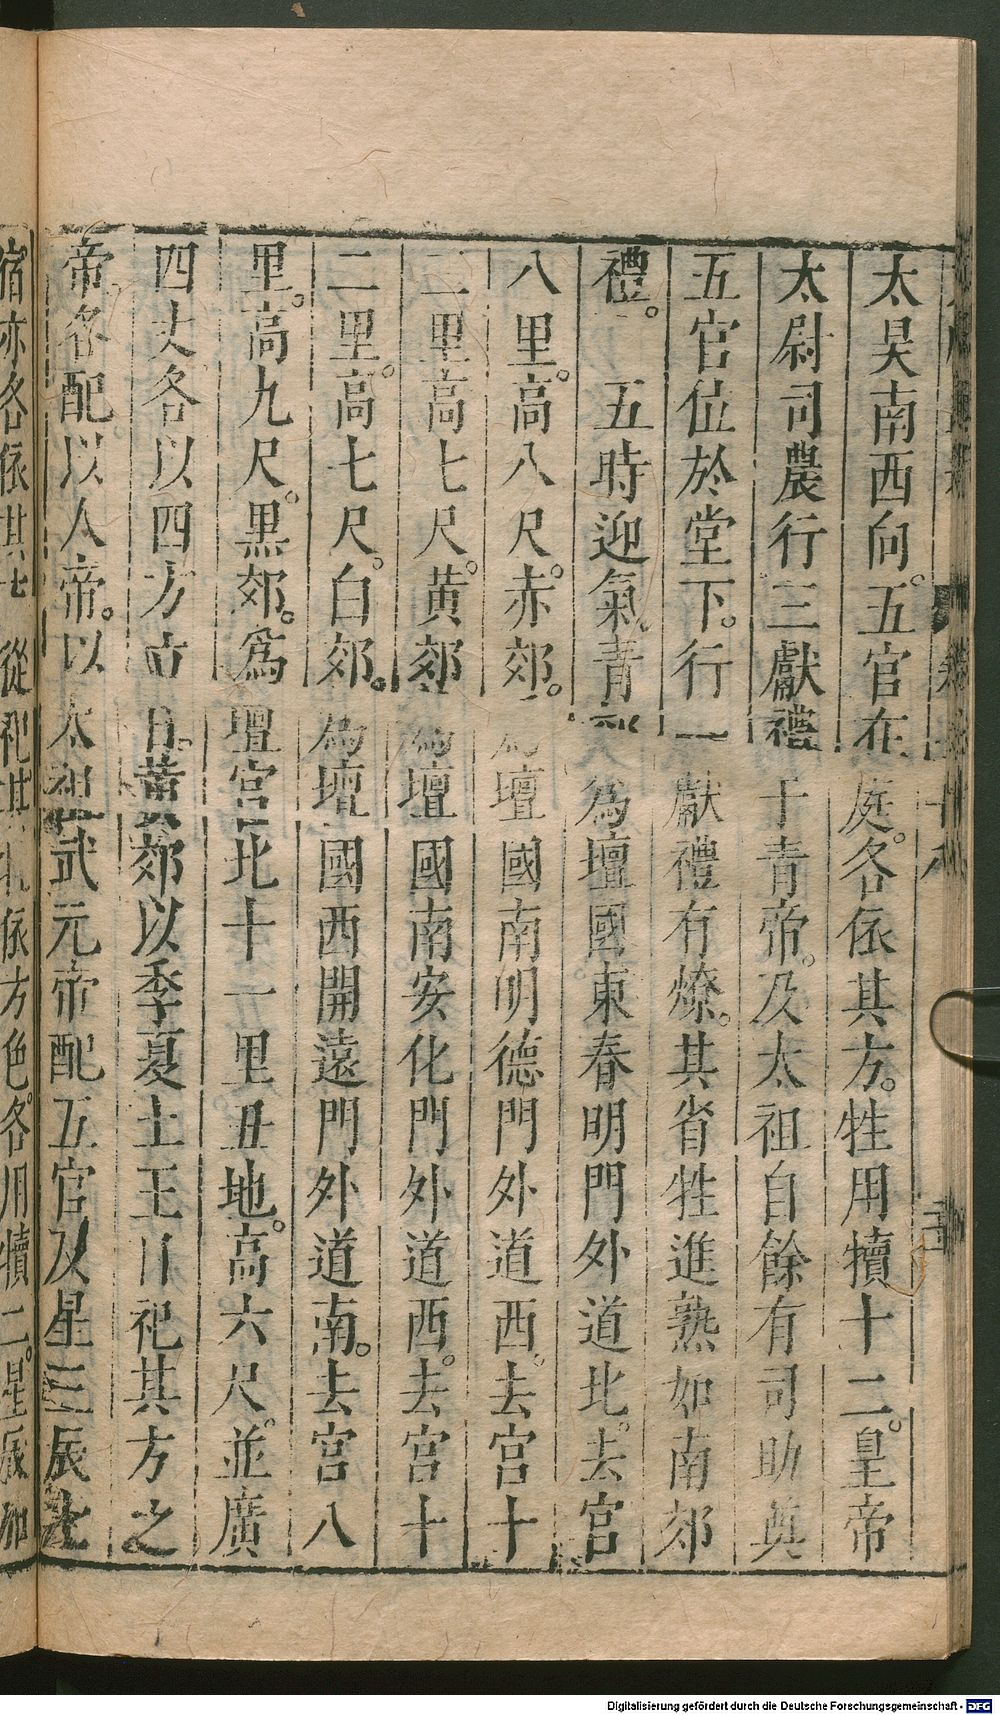 太昊南西向。五官在庭。各依其方。牲用犢十二。皇帝
太尉司農行三獻禮于青帝。及太祖自餘有司助奠
五官位於堂下。行一獻禮有燎。其省牲進熟如南郊
禮。 五時迎氣。青郊為壇國東春明門外道北。去宮
八里。高八尺。赤郊。為壇國南明德門外道西。去宮十
三里高七尺。黃郊為壇國南安化門外道西。去宮十
二里。高七尺。白郊。為壇國西開遠門外道南。去宮八
里。高九尺。黑郊。為壇宮北十一里丑地。高六尺。並廣
四丈各以四方立日。黃郊以季夏土王日祀其方之
帝各配。以人帝。以太祖武元帝配五官及星三辰七
宿亦各依其 從祀其 依方色。各用犢二。星辰加
Digitalisierung gefördert durch die Deutsche Forschungsgemeinschaft - DFG